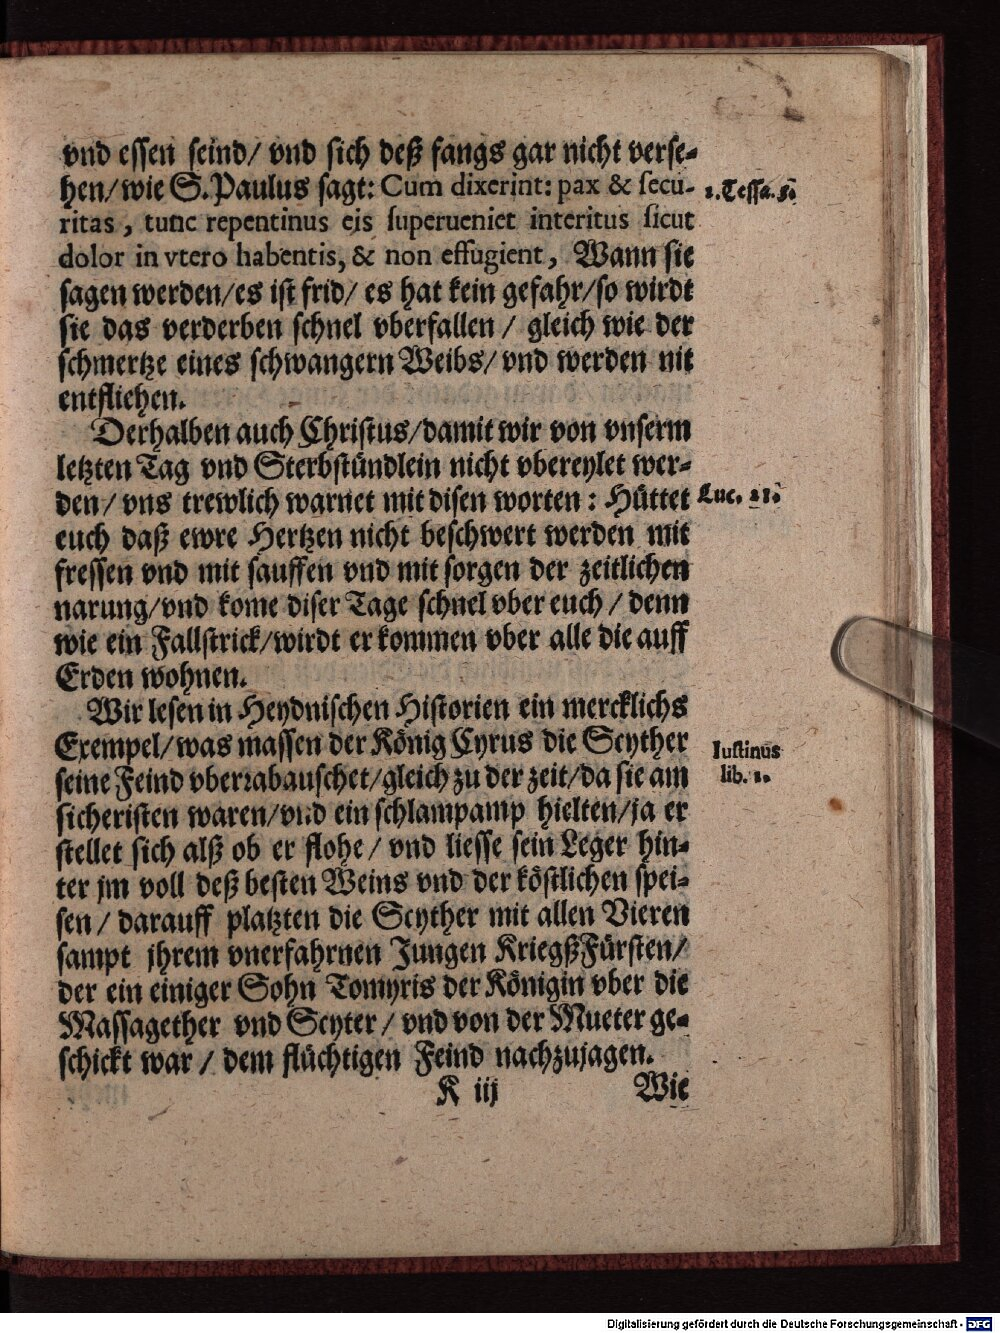 vnd essen seind/ vnd sich deß fangs gar nicht verse-
hen/ wie S. Paulus sagt: Cum dixerint: pax & secu- 1. Tessa. 5.
ritas, tunc repentinus eis superueniet interitus sicut
dolor in vtero habentis, & non effugient, Wann sie
sagen werden/ es ist frid/ es hat kein gefahr/ so wirdt
sie das verderben schnel vberfallen/ gleich wie der
schmertze eines schwangern Weibs/ vnd werden nit
entfliehen.
Derhalben auch Christus/ damit wir von vnserm
letzten Tag vnd Sterbstündlein nicht vbereylet wer-
den/ vns trewlich warnet mit disen worten: Hüttet Luc. 21.
euch daß ewre Hertzen nicht beschwert werden mit
fressen vnd mit sauffen vnd mit sorgen der zeitlichen
narung/ vnd kome diser Tage schnel vber euch/ denn
wie ein Fallstrick/ wirdt er kommen vber alle die auff
Erden wohnen.
Wir lesen in Heydnischen Historien ein mercklichs
Exempel/ was massen der König Cyrus die Scyther Iustinus
seine Feind vberrabauschet/ gleich zu der zeit/ da sie am lib. 1.
sicheristen waren/ vnd ein schlampamp hielten/ ja er
stellet sich alß ob er flohe/ vnd liesse sein Leger hin-
ter jm voll deß besten Weins vnd der köstlichen spei-
sen/ darauff platzten die Scyther mit allen Vieren
sampt jhrem vnerfahrnen Jungen KriegßFürsten/
der ein einiger Sohn Tomyris der Königin vber die
Massagether vnd Scyter/ vnd von der Mueter ge-
schickt war/ dem flüchtigen Feind nachzujagen.
K iij Wie
Digitalisierung gefördert durch die Deutsche Forschungsgemeinschaft - DFG